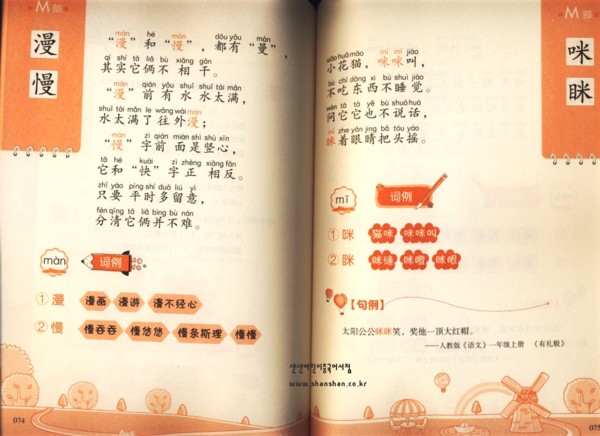 M部
漫
慢
màn hé màn dōu yǒu màn
“漫”和“慢”，都有“曼”，
qí shí tā liǎ bù xiāng gān
其实它俩不相干。
màn qián yǒu shuǐ shuǐ tài mǎn
“漫”前有水水太满，
shuǐ tài mǎn le wǎng wài màn
水太满了往外漫；
màn zì qián miàn shì shù xīn
“慢”字前面是竖心，
tā hé kuài zì zhèng xiāng fǎn
它和“快”字正相反。
zhǐ yào píng shí duō liú yì
只要平时多留意，
fēn qīng tā liǎ bìng bù nán
分清它俩并不难。
màn
词例
①漫 漫画 漫游 漫不经心
②慢 慢吞吞 慢悠悠 慢条斯理 慢慢
074
M部
咪
眯
xiǎo huā māo mī mī jiào
小花猫，咪咪叫，
bù chī dōng xi bù shuì jiào
不吃东西不睡觉。
wèn tā tā yě bù shuō huà
问它它也不说话，
mī zhe yǎn jing bǎ tóu yáo
眯着眼睛把头摇。
mī
词例
①咪 猫咪 咪咪叫
②眯 眯缝 眯眼
【句例】
太阳公公眯眯笑，奖他一顶大红帽。
——人教版《语文》一年级上册 《有礼貌》
산산어린이중국어서점
www.shanshan.co.kr
075